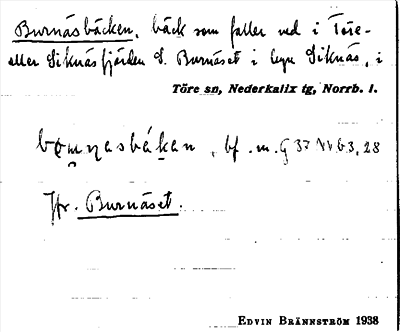 Burnäsbäcken, bäck som faller ud i Töre-
eller Siknäsfjärden S. Burnäset i byn Siknäs, i
Töre sn, Nederkalix tg, Norrb. l.
bf. m.
Jfr. Burnäset.
EDVIN BRÄNNSTRÖM 1938